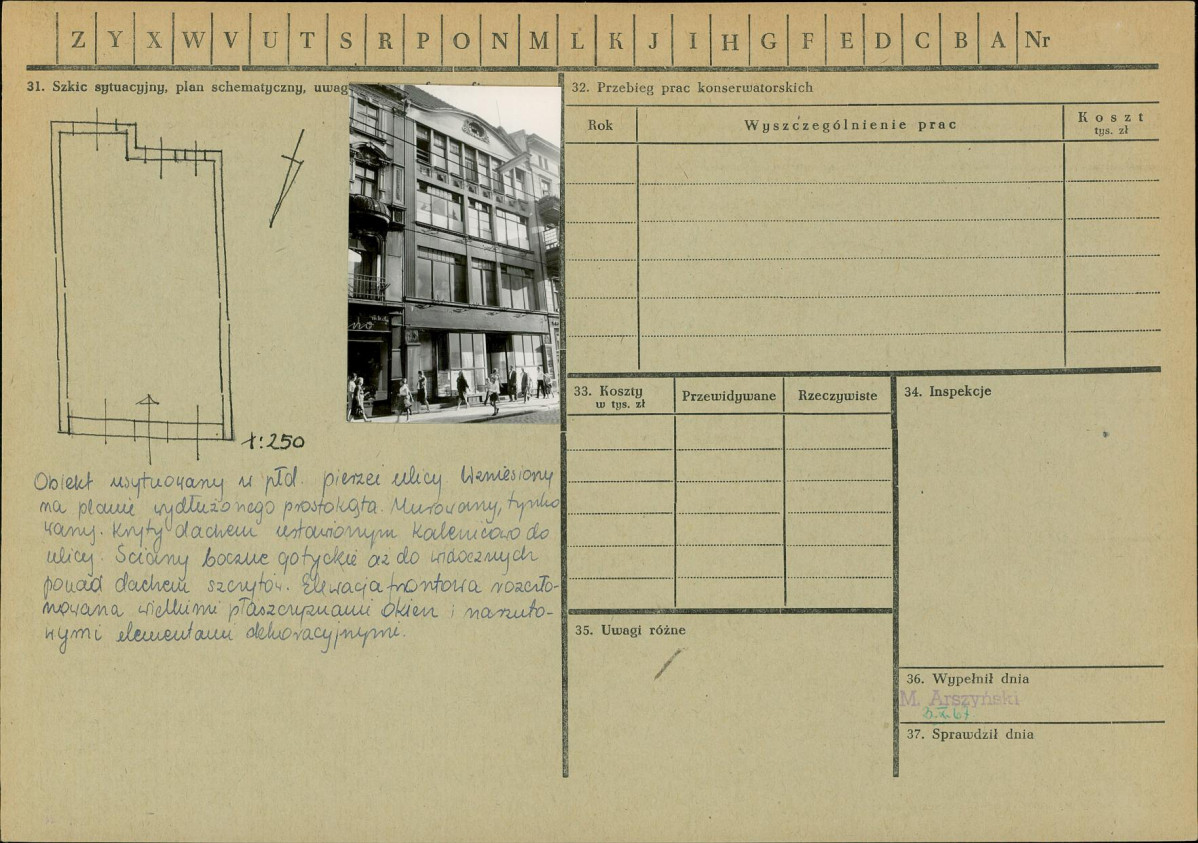 Z Y X W V U T S R P O N M L K J I H G F E D C B A Nr
31. Szkic sytuacyjny, plan schematyczny, uwag
1:250
Obiekt usytuowany w płd. pierzei ulicy. Wzniesiony
na planie wydłużonego prostokąta. Murowany, tynko
wany. Kryty dachem ustawionym kalenicowo do
ulicy. Ściany boczne gotyckie aż do widocznych
ponad dachem szczytów. Elewacja frontowa rozczło-
nowana wielkimi płaszczyznami okien i narzuto-
wymi elementami dekoracyjnymi.
32. Przebieg prac konserwatorskich
Rok
Wyszczególnienie prac
Koszt
tys. zł
33. Koszty
w tys. zł
Przewidywane
Rzeczywiste
34. Inspekcje
35. Uwagi różne
36. Wypełnił dnia
M. Arszyński
37. Sprawdził dnia